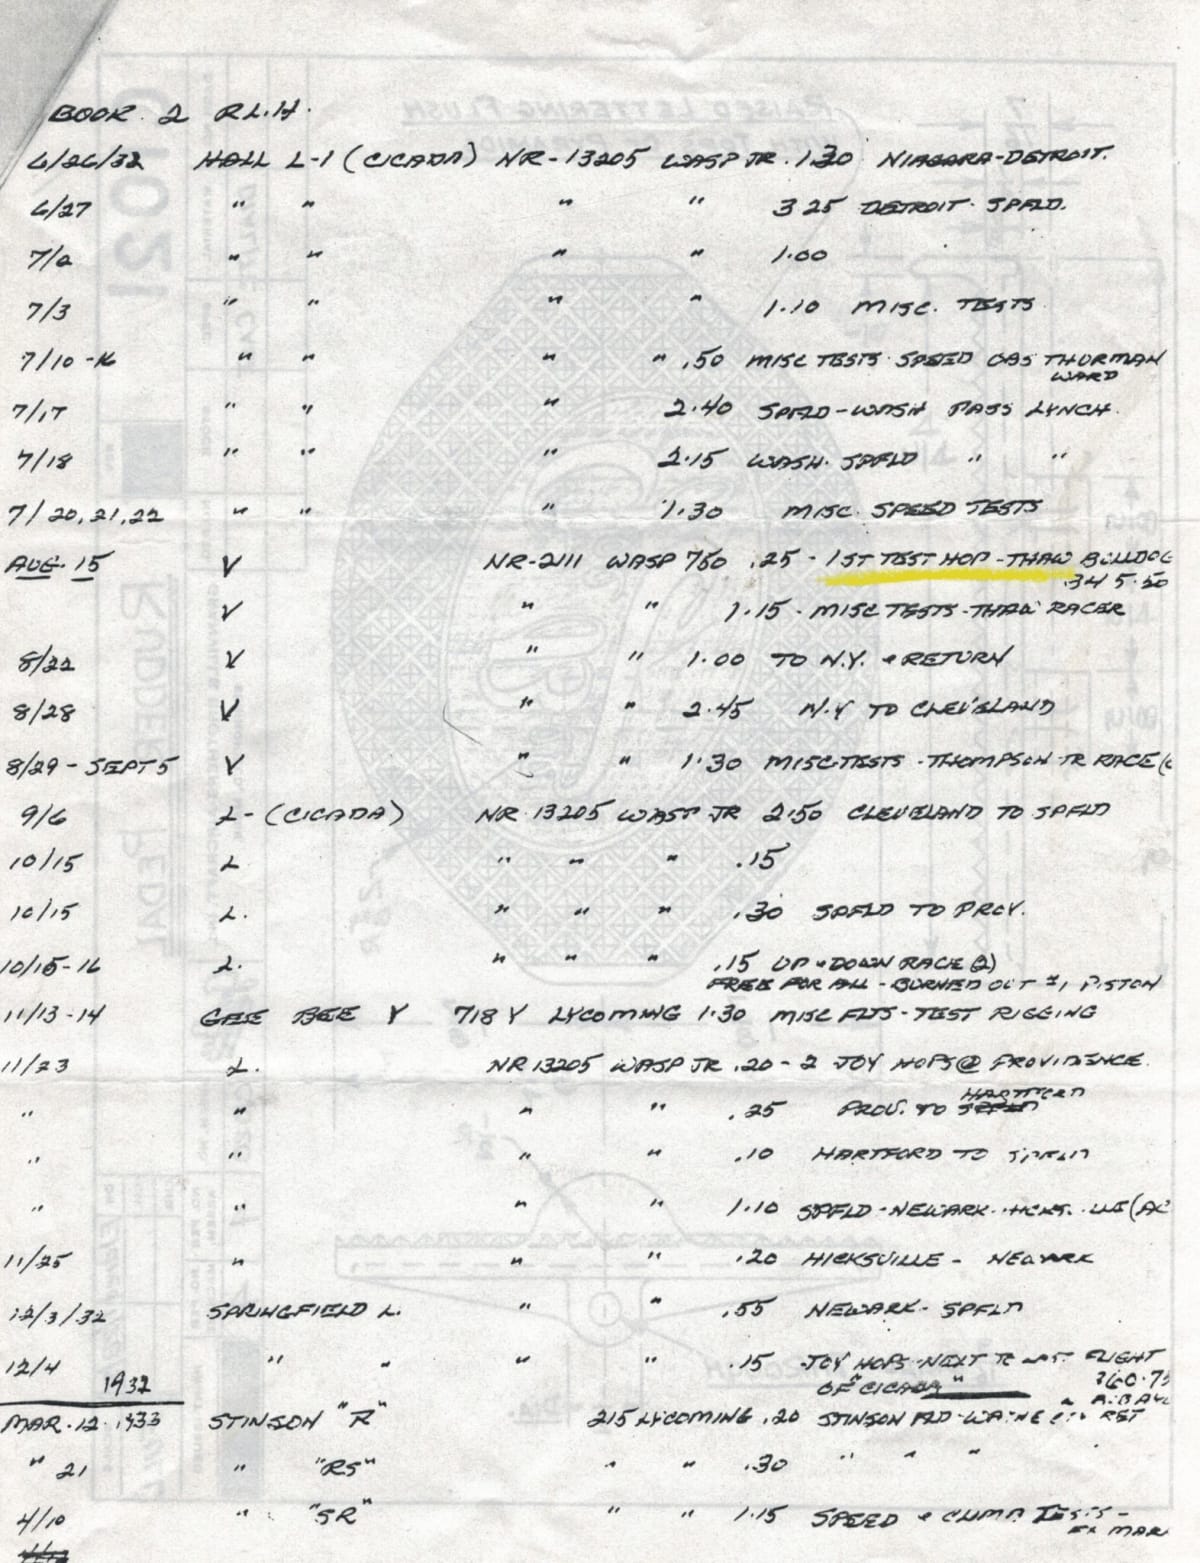 BOOK 2 R.L.H.
6/26/32 HALL L-1 (CICADA) NR-13205 WASP JR. 1.30 NIAGARA-DETROIT.
6/27 " " " " 3 25 DETROIT-SPFLD.
7/2 " " " " 1.00
7/3 " " " " 1.10 MISC. TESTS
7/10-16 " " " " .50 MISC TESTS SPEED OBS THURMAN
WARD
7/17 " " " 2.40 SPFLD-WASH PASS LYNCH.
7/18 " " " 2.15 WASH. SPFLD " "
7/20,21,22 " " " 1.30 MISC. SPEED TESTS
AUG. 15 V NR-2111 WASP 750 .25 - 1ST TEST HOP-THAW BULLDOG
345.50
V " " 1.15 - MISC TESTS-THAW RACER
8/22 V " " 1.00 TO N.Y. & RETURN
8/28 V " " 2.45 N.Y TO CLEVELAND
8/29 - SEPT 5 V " " 1.30 MISC-TESTS -THOMPSON TR RACE
9/6 L-(CICADA) NR 13205 WASP JR 2.50 CLEVELAND TO SPFLD
10/15 L " " " .15
10/15 L. " " " .30 SPFLD TO PROV.
10/15-16 L. " " " .15 UP & DOWN RACE (2)
FREE FOR ALL - BURNED OUT #1 PISTON
11/13-14 GEE BEE Y 718Y LYCOMING 1.30 MISC FLTS-TEST RIGGING
11/23 L. NR 13205 WASP JR .20-2 JOY HOPS @ PROVIDENCE.
" " " " .25 PROV. TO HARTFORD
" " " " .10 HARTFORD TO SPFLD
" " " " 1.10 SPFLD-NEWARK-
11/25 " " " .20 HICKSVILLE - NEWARK
12/3/32 SPRINGFIELD L. " " .55 NEWARK-SPFLD
12/4 " " " " .15 JOY HOPS-NEXT TO LAST FLIGHT
1932 OF "CICADA"
MAR. 12 1933 STINSON "R" 215 LYCOMING .20 STINSON FLD-WAYNE RET
" 21 " "RS" " " .30 " " "
4/10 " "SR" " " 1.15 SPEED & CLIMB TESTS-